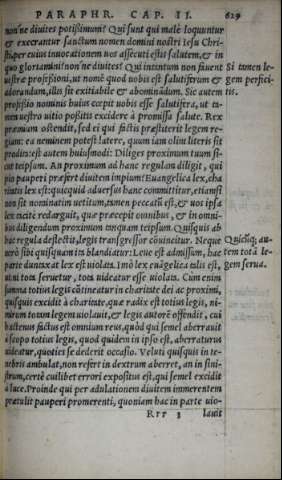 PARAPHR. CAP. II. 629
non'ne diuites potissimum? Qui sunt qui malè loquuntur
& execrantur sanctum nomen domini nostri Iesu Chri-
sti, per cuius inuocationem uos assecuti estis salutem, & in
quo gloriamini? non'ne diuites? Qui intantum non fiuent
uestræ professioni, ut nomē quod uobis est salutiferum &
adorandum, illis sit exitiabile & abominādum. Sic autem
professio nominis huius cœpit uobis esse salutifera, ut ta-
men uestro uitio possitis excidere à promissa salute. Rex
præmium ostendit, sed ei qui factis præstiterit legem re-
giam: ea neminem potest latere, quum iam olim literis sit
prodita: est autem huiusmodi: Diliges proximum tuum si-
cut teipsum. An proximum ad hanc regulam diligit, qui
pro pauperi præfert diuitem impium? Euangelica lex, cha
ritatis lex est: quicquid aduersus hanc committitur, etiamsi
non sit nominatim uetitum, tamen peccatū est, & uos ipsa
lex tacitè redarguit, quæ præcepit omnibus, & in omni-
bus diligendum proximum tanquam teipsum. Quisquis ab
hac regula deflectit, legis transgressor cōuincitur. Neque
uerò sibi quisquam ita blandiatur: Leue est admissum, hac
parte duntaxat lex est uiolata. Imò lex euāgelica talis est,
ut ni tota seruetur, tota uideatur esse uiolata. Cum enim
summa totius legis cōtineatur in charitate dei ac proximi,
quisquis excidit à charitate, quæ radix est totius legis, ni-
mirum totam legem uiolauit, & legis autorē offendit, cui
hactenus factus est omnium reus, quòd qui semel aberrauit
à scopo totius legis, quod quidem in ipso est, aberraturus
uideatur, quoties se dederit occasio. Veluti quisquis in te-
nebris ambulat, non refert in dextram aberret, an in sini-
stram, certè cuilibet errori expositus est, qui semel excidit
à luce. Proinde qui per adulationem diuitem immerentem
prætulit pauperi promerenti, quoniam hac in parte uio-
Rrr 3 lauit
Si tamen le-
gem perfici-
tis.
Quicūq; au-
tem totā le-
gem serua.